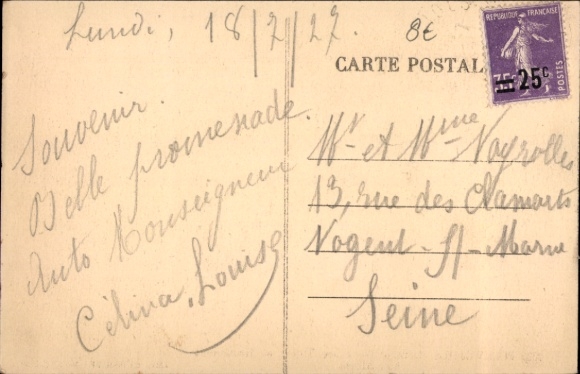 Lundi, 18/7/27.
8€
CARTE POSTALE
REPUBLIQUE FRANÇAISE
35c
25c
POSTES
Souvenir.
Belle promenade.
Auto Monseigneur
Célina, Louise
Mr et Mme Noyrolles
13, rue des Clamarts
Nogent-S/-Marne
Seine